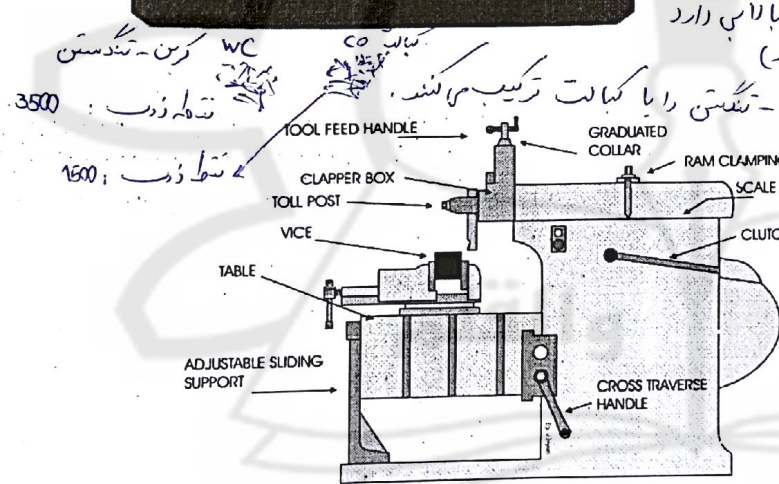 با رابی دارد
کبالت CO WC کربن - تنگستن
- تنگستن را با کبالت ترکیب می کنند.
نقطه ذوب : 3500
نقطه ذوب : 1500
TOOL FEED HANDLE
GRADUATED
COLLAR
RAM CLAMPING
CLAPPER BOX
SCALE
TOLL POST
VICE
CLUTC
TABLE
ADJUSTABLE SLIDING
SUPPORT
CROSS TRAVERSE
HANDLE